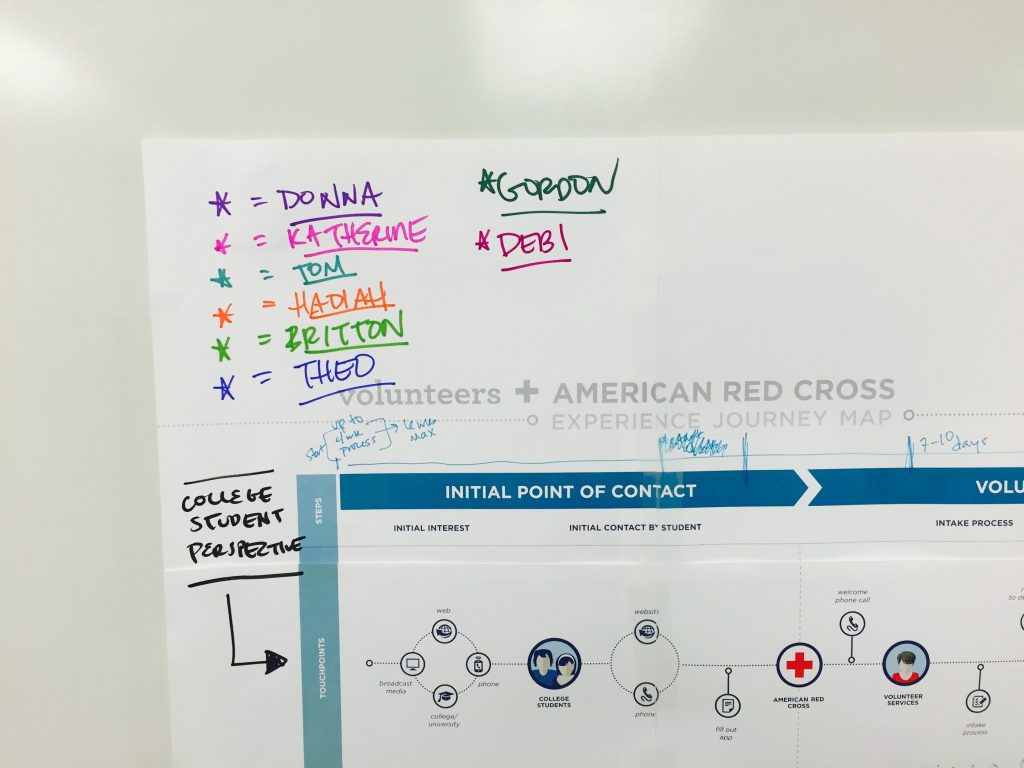 * = DONNA
* = KATHERINE
* = TOM
* = HADIAH
* = BRITTON
* = THEO
*GORDON
*DEBI
volunteers + AMERICAN RED CROSS
EXPERIENCE JOURNEY MAP
start
up to
4 wk
process
max
7-10 days
COLLEGE
STUDENT
PERSPECTIVE
STEPS
INITIAL POINT OF CONTACT
VOLU
INITIAL INTEREST
INITIAL CONTACT BY STUDENT
INTAKE PROCESS
TOUCHPOINTS
web
broadcast
media
phone
college/
university
COLLEGE
STUDENTS
website
phone
fill out
app
AMERICAN RED
CROSS
welcome
phone call
VOLUNTEER
SERVICES
intake
process
to de